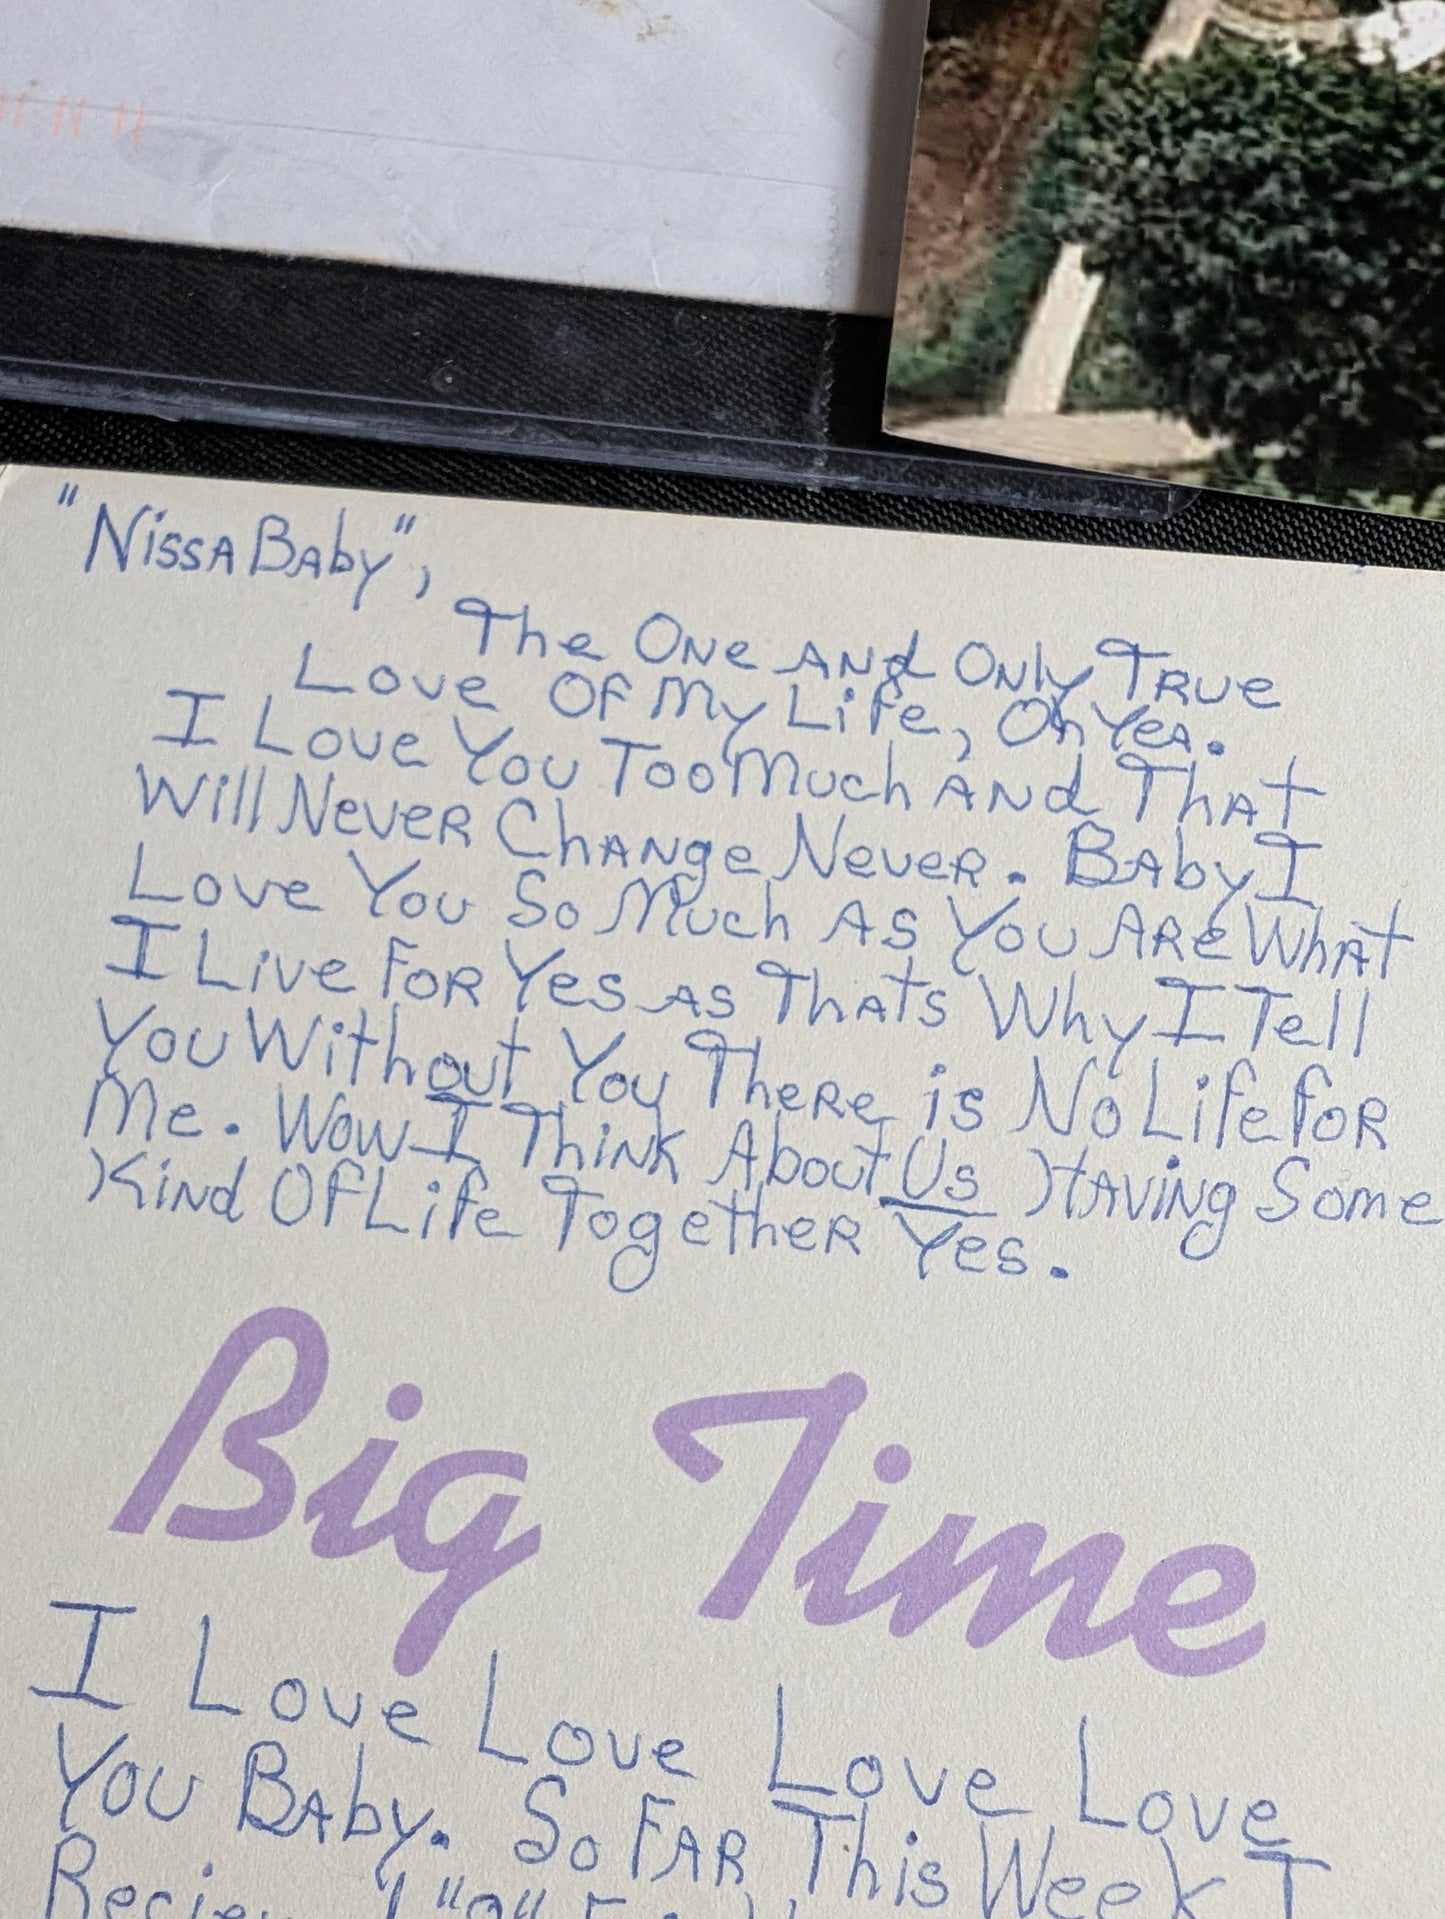 "Nissa Baby",
The One And Only True
Love Of My Life, Oh Yea.
I Love You Too Much And That
Will Never Change Never. Baby I
Love You So Much As You Are What
I Live For Yes As Thats Why I Tell
You Without You There is No Life For
Me. Wow I Think About Us Having Some
Kind Of Life Together Yes.
Big Time
I Love Love Love Love
You Baby. So Far This Week I